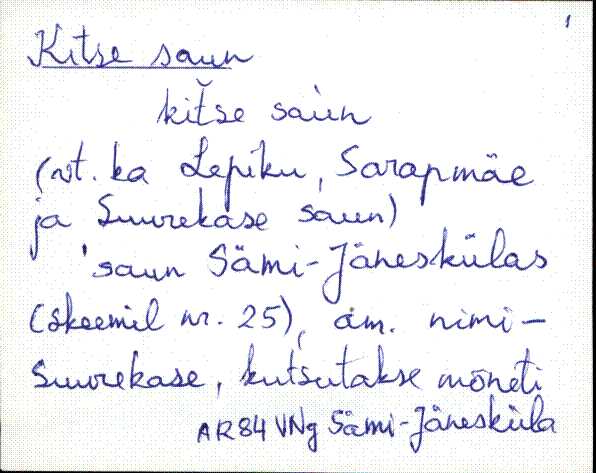 1
Kitse saun
kit̆se saùn
(vt. ka Lepiku, Sarapmäe
ja Suurekase saun)
'saun Sämi-Jäneskülas
(skeemil nr. 25), am. nimi –
Suurekase, kutsutakse mõneti
AR84 VNg Sämi-Jänesküla